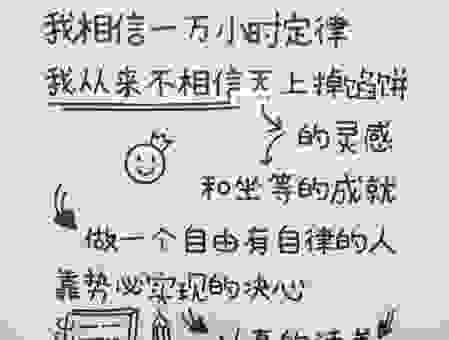 我相信一万小时定律
我从来不相信天上掉馅饼
的灵感
和坐等的成就
做一个自由有自律的人
靠势必实现的决心
认真的活着